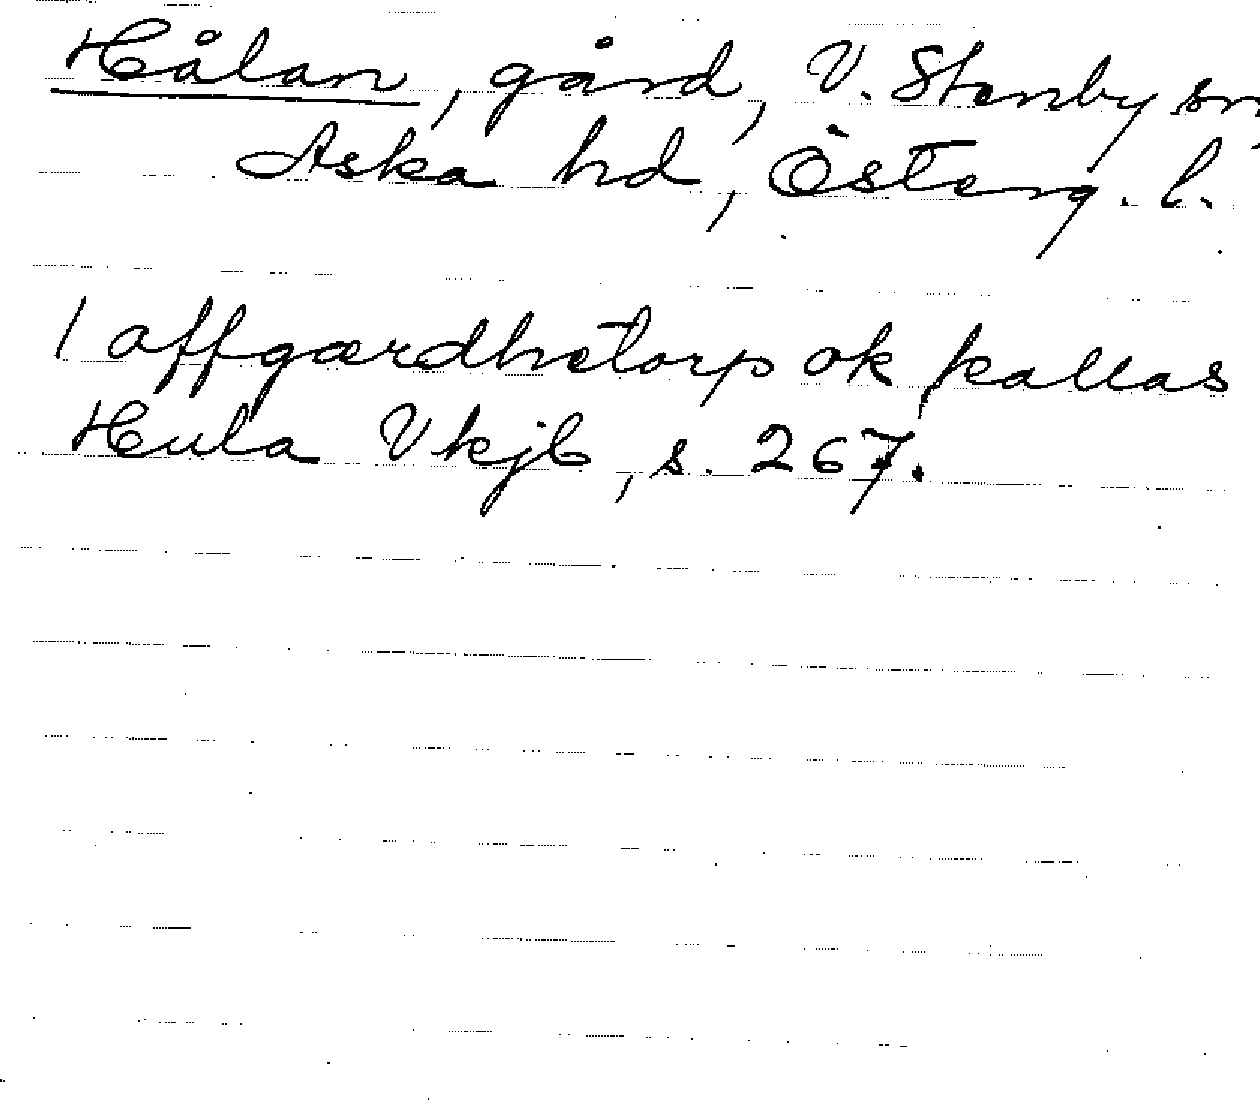 Hålan, gård, V. Stenby sn,
Aska hd, Österg. l.
1 affgærdhetorp ok kallas
Hula Vkjb, s. 267.